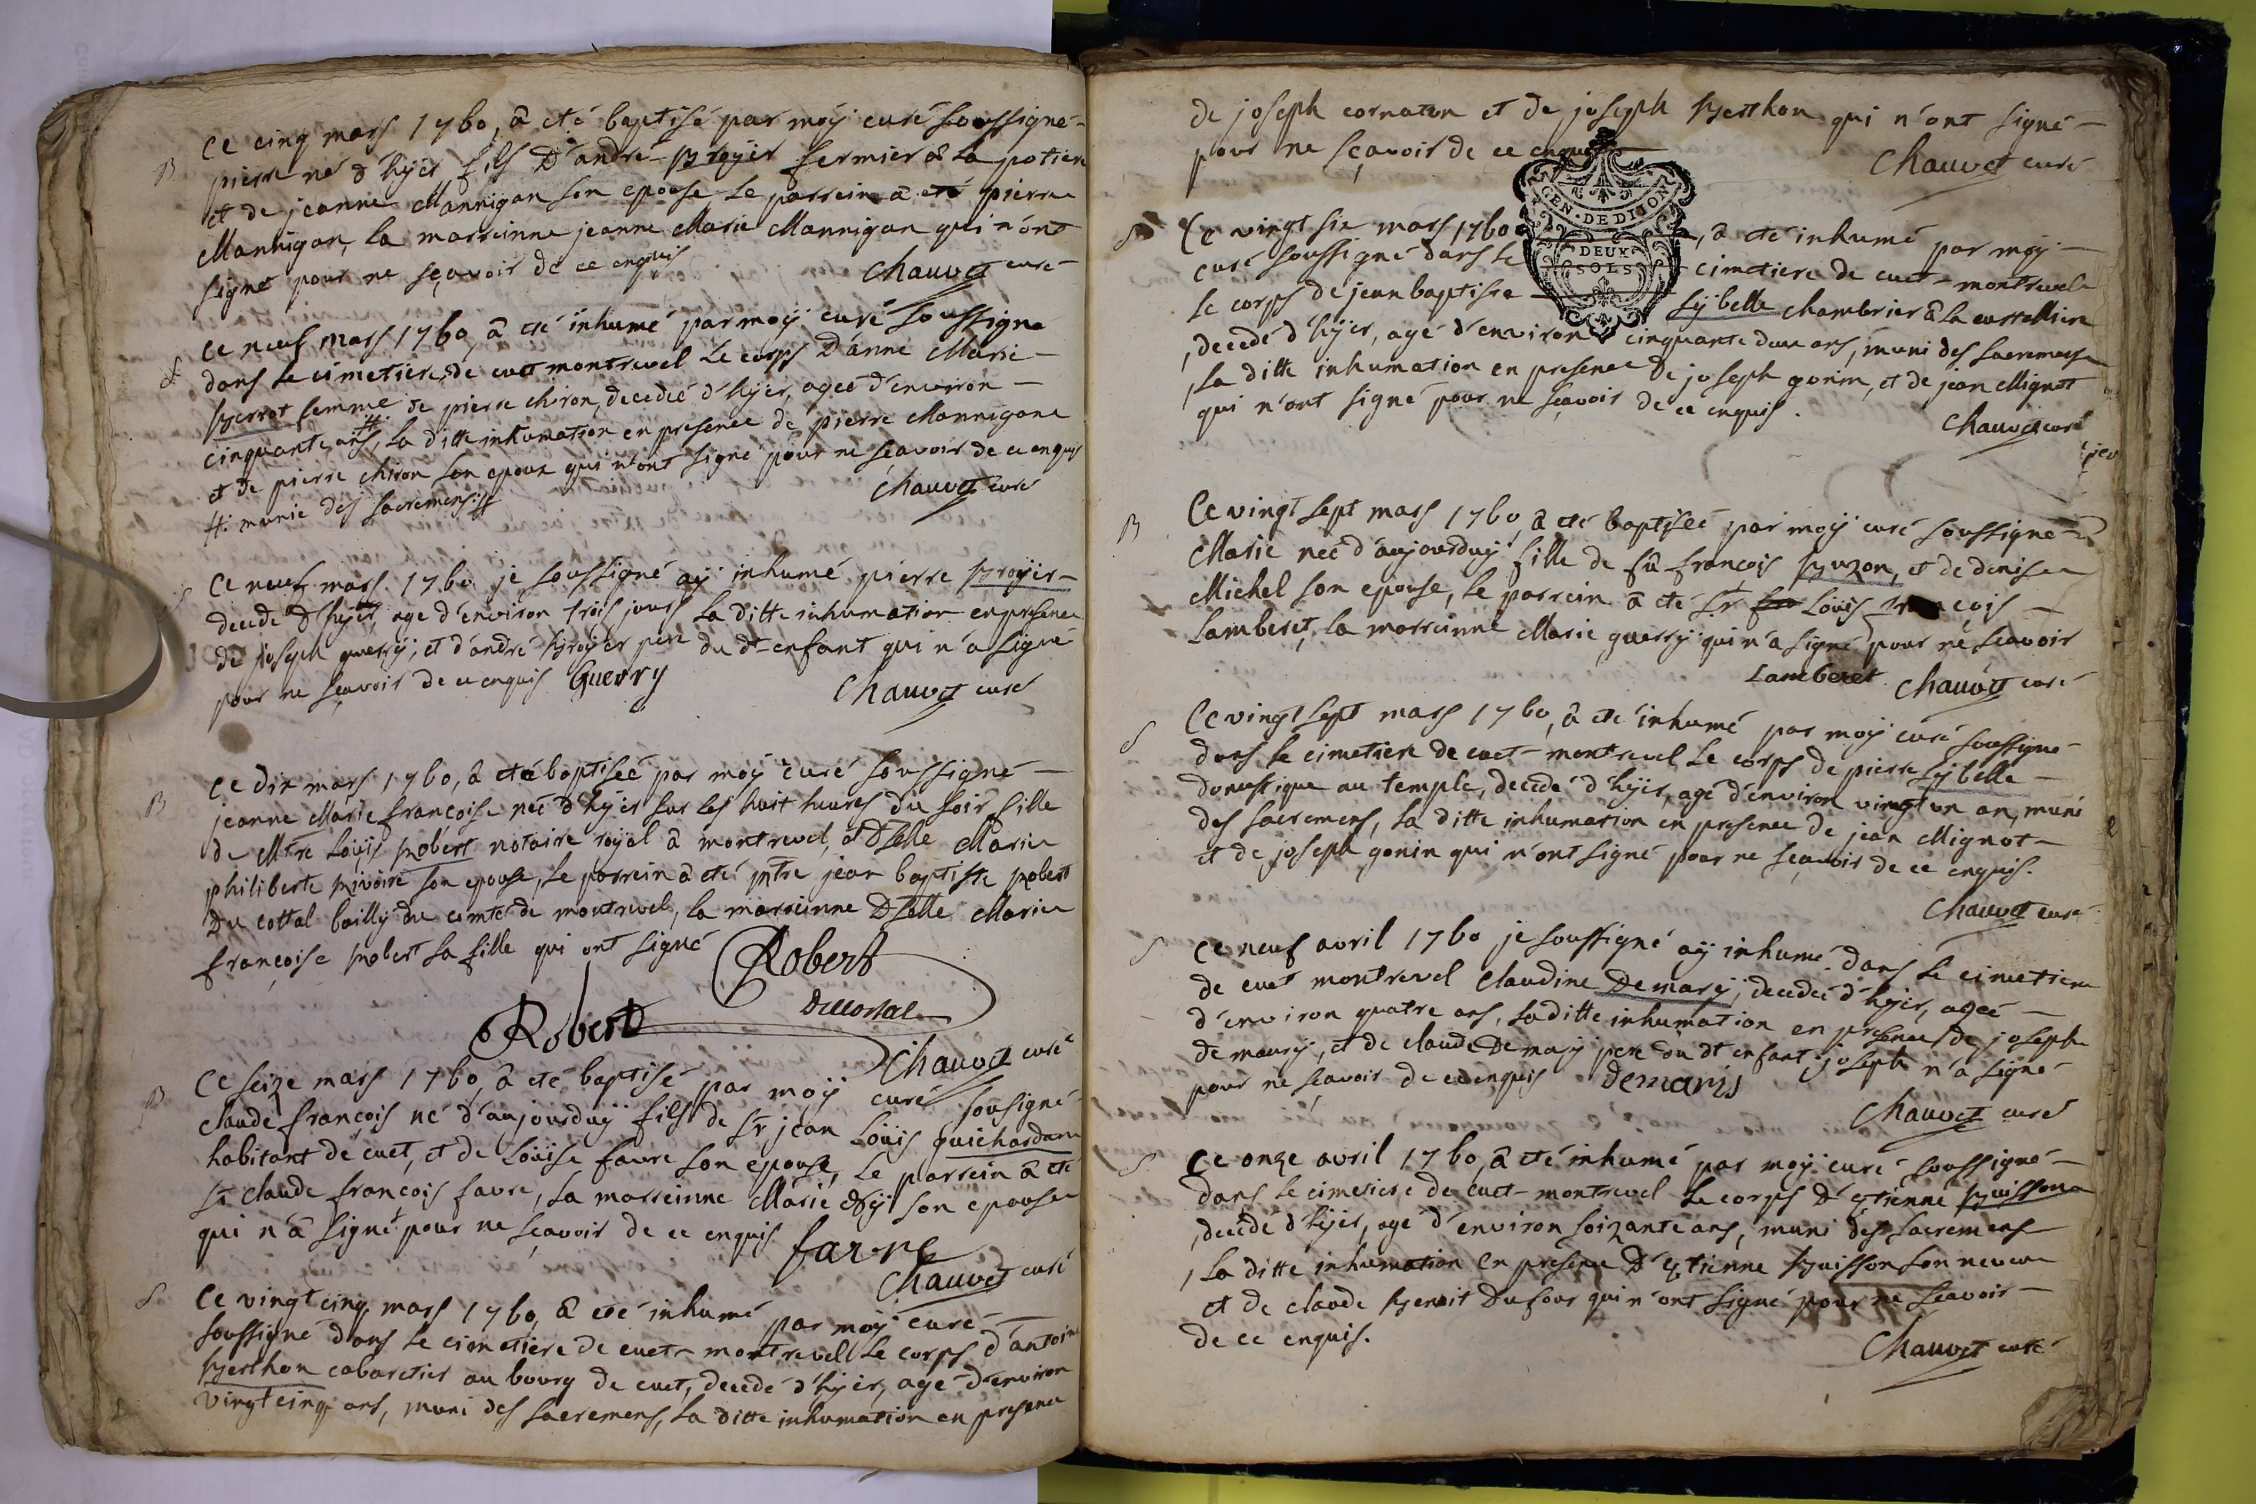 B
Ce cinq mars 1760, à eté baptisé par moÿ curé soussigné
pierre né d'hÿer, fils d'andré Broÿer fermier à la potiere
et de jeanne Mannigan son epouse, le parrein a eté pierre
Mannigan, la marreinne jeanne Marie Mannigan qui n'ont
signé pour ne sçavoir de ce enquis
Chauvet curé
S
Ce neuf mars 1760, à eté inhumé par moÿ curé soussigné
dans le cimetiere de cuet montrevel le corps d'anne Marie
Berrot femme de pierre chiron, decedeé d'hÿer, ageé d'environ
cinquante ans #, la ditte inhumation en presence de pierre Mannigand
et de pierre chiron son epoux qui n'ont signé pour ne sçavoir de ce enquis
#. munie des sacremens #
Chauvet curé
S
Ce neuf mars 1760 je soussigné aÿ inhumé pierre Broÿer
decedé d'hÿer, agé d'environ trois jours la ditte inhumation en presence
de joseph guerrÿ, et d'andré Broÿer pere du dt enfant qui n'a signé
pour ne sçavoir de ce enquis Guerry
Chauvet curé
B
Ce dix mars 1760, à eté baptiseé par moÿ curé soussigné
jeanne Marie françoise neé d'hÿer sur les huit heures du soir, fille
de Mtre Loüis Robert notaire roÿal à montrevel, et Dzelle Marie
philiberte Rivoire son epouse, le parrein à eté Mtre jean baptiste Robert
Du cottal bailly du comté de montrevel, la marreinne Dzelle Marie
françoise Robert sa fille qui ont signé
Robert
Ducottal
Robert
Chauvet curé
B
Ce seize mars 1760, à eté baptisé par moÿ curé sousigné
claude françois né d'aujourduÿ fils de Sr jean Loüis guichardan
habitant de cuet, et de Loüise favre son epouse, le parrein à eté
Sr claude françois favre, la marreinne Marie son epouse
qui n'à signé pour ne sçavoir de ce enquis
favre
Chauvet curé
S
Ce vingt cinq mars 1760, à eté inhumé par moÿ curé
soussigné dans le cimetiere de cuet montrevel le corps d'antoine
Berthon cabaretier au bourg de cuet, decedé d'hÿer, agé d'environ
vingt cinq ans, muni des sacremens, la ditte inhumation en presence
de joseph cornaton et de joseph Berthon qui n'ont signé
pour ne sçavoir de ce enquis
Chauvet curé
GEN. DE DIJON
DEUX
SOLS
S
Ce vingt six mars 1760, à eté inhumé par moÿ
curé soussigné dans le cimetiere de cuet montrevel
le corps de jean baptiste Sÿbelle chambrier à la
decedé d'hÿer, agé d'environ cinquante deux ans, muni des sacremens
la ditte inhumation en presence de joseph gonin, et de jean Mignot
qui n'ont signé pour ne sçavoir de ce enquis.
Chauvet curé
B
Ce vingt sept mars 1760 à eté baptiseé par moÿ curé soussigné
Marie neé d'aujourduÿ fille de fû françois Buzon, et de denise
Michel son epouse, le parrein à eté Sr Loüis françois
Lamberet, la marreinne Marie guerrÿ qui n'a signé pour ne sçavoir
Lamberet Chauvet curé
S
Ce vingt sept mars 1760, à eté inhumé par moÿ curé soussigné
dans le cimetiere de cuet montrevel le corps de pierre Sÿbelle
domestique au temple, decedé d'hÿer, agé d'environ vingt un an, muni
des sacremens, la ditte inhumation en presence de jean Mignot
et de joseph gonin qui n'ont signé pour ne sçavoir de ce enquis.
Chauvet curé
S
Ce neuf avril 1760 je soussigné aÿ inhumé dans le cimetiere
de cuet montrevel claudine Demarÿ, decedeé d'hÿer, ageé
d'environ quatre ans, la ditte inhumation en presence de joseph
de maurÿ, et de claude Demarÿ pere du dt enfant, joseph n'à signé
pour ne sçavoir de ce enquis demaris
Chauvet curé
S
Ce onze avril 1760, à eté inhumé par moÿ curé soussigné
dans le cimetiere de cuet montrevel le corps d'Etienne Buisson
decedé d'hÿer, agé d'environ soizante ans, muni des sacremens
la ditte inhumation en presence d'Etienne Buisson son neveu
et de claude Benoit Dufour qui n'ont signé pour ne sçavoir
de ce enquis.
Chauvet curé